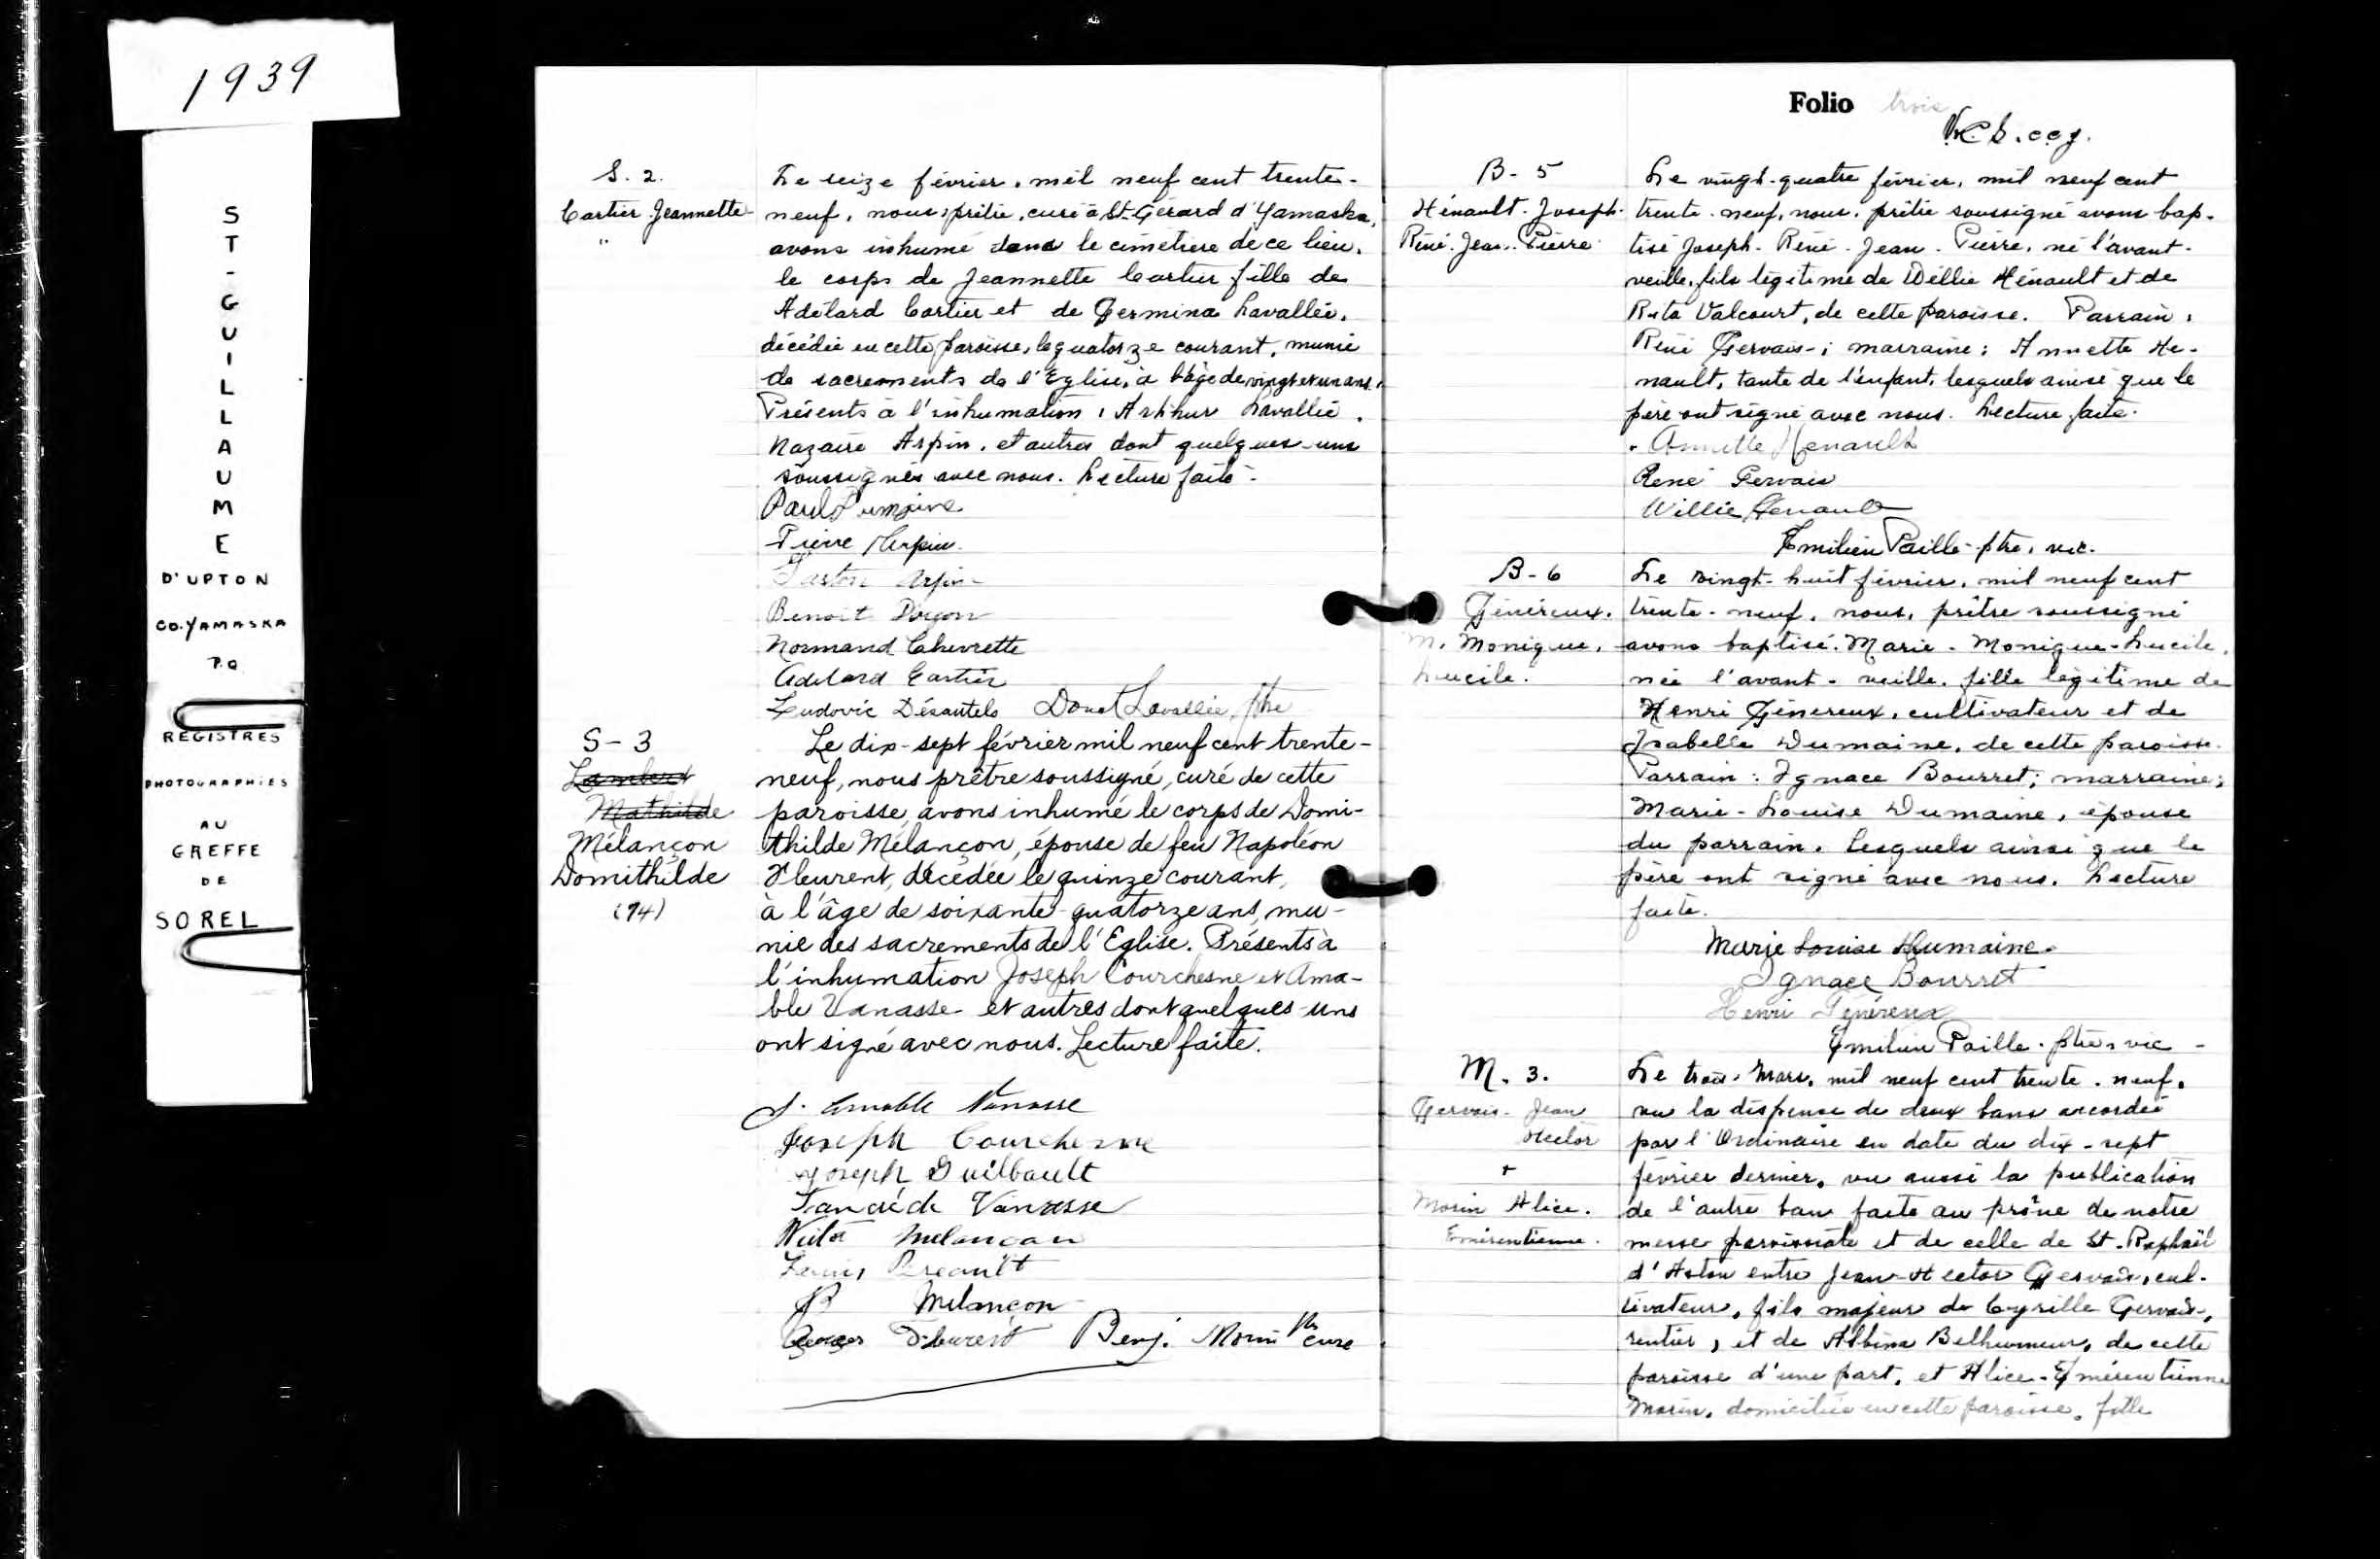 1939
ST-GUILLAUME
D'UPTON
CO. YAMASKA
P.Q.
REGISTRES
PHOTOGRAPHIES
AU
GREFFE
DE
SOREL
S. 2.
Cartier Jeannette
"
Le seize février, mil neuf cent trente-
neuf, nous, prêtre, curé à St-Gérard d'Yamaska,
avons inhumé dans le cimetière de ce lieu,
le corps de Jeannette Cartier fille de
Adélard Cartier et de Germina Lavallée,
décédée en cette paroisse, le quatorze courant, munie
de sacrements de l'Eglise, à l'âge de vingt et un ans.
Présents à l'inhumation, Arthur Lavallée,
Nazaire Arpin, et autres dont quelques-uns
soussignés avec nous. Lecture faite.
Paul
Pierre Arpin
Gaston Arpin
Benoit
Normand Chevrette
Adelard Cartier
Ludovic Désautels Donat Lavallée, ptre
S-3
Lambert
Mathilde
Mélançon
Domithilde
(74)
Le dix-sept février mil neuf cent trente-
neuf, nous prêtre soussigné, curé de cette
paroisse, avons inhumé le corps de Domi-
thilde Mélançon, épouse de feu Napoléon
Fleurent, décédée le quinze courant,
à l'âge de soixante-quatorze ans, mu-
nie des sacrements de l'Eglise. Présents à
l'inhumation Joseph Courchesne et Ama-
ble Vanasse et autres dont quelques-uns
ont signé avec nous. Lecture faite.
J. Amable Vanasse
Joseph Courchesne
Joseph Guilbault
Tancréde Vanasse
Melancon
Melançon
Fleurent Benj. Morin ptr curé
Folio trois
B-5
Hénault. Joseph.
Réné. Jean. Pierre
Le vingt-quatre février, mil neuf cent
trente-neuf, nous, prêtre soussigné avons bap-
tisé Joseph-Réné-Jean-Pierre, né l'avant-
veille, fils légitime de Willie Hénault et de
Rita Valcourt, de cette paroisse. Parrain,
Réné Gervais; marraine: Annette He-
nault, tante de l'enfant, lesquels ainsi que le
père ont signé avec nous. Lecture faite.
Annette Henault
René Gervais
Willie Henault
Emilien Paille ptre, vic.
B-6
Généreux.
M. Monique.
Lucile.
Le vingt-huit février, mil neuf cent
trente-neuf, nous, prêtre soussigné
avons baptisé Marie-Monique-Lucile,
née l'avant-veille, fille légitime de
Henri Généreux, cultivateur et de
Isabelle Dumaine, de cette paroisse.
Parrain: Ignace Bourret; marraine;
Marie-Louise Dumaine, épouse
du parrain. Lesquels ainsi que le
père ont signé avec nous. Lecture
faite.
Marie Louise Dumaine
Ignace Bourret
Henri Généreux
Emilien Paille. ptre, vic
M. 3.
Gervais. Jean
Hector
+
Morin Alice.
Emérentienne.
Le trois mars, mil neuf cent trente-neuf,
vu la dispense de deux bans accordée
par l'Ordinaire en date du dix-sept
février dernier, vu aussi la publication
de l'autre ban faite au prône de notre
messe paroissiale et de celle de St-Raphaël
d'Aston entre Jean-Hector Gervais, cul-
tivateur, fils majeur de Cyrille Gervais,
rentier, et de Albina Belhumeur, de cette
paroisse d'une part, et Alice-Emérentienne
Morin, domiciliée en cette paroisse, fille